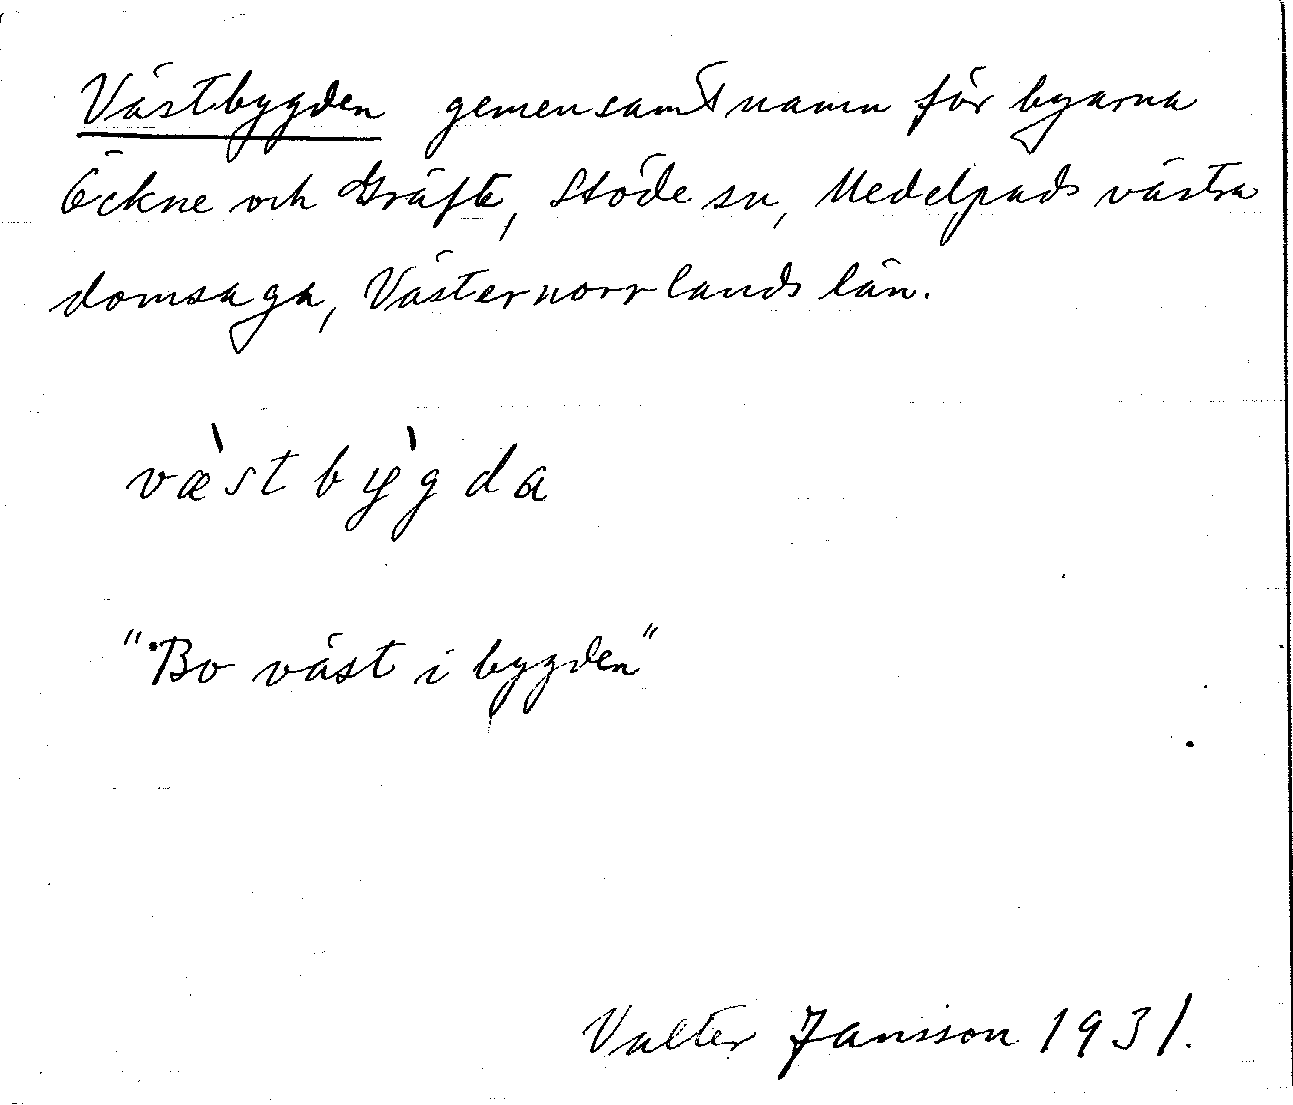 Västbygden gemensamt namn för byarna
Öckne och Gräfte, Stöde sn, Medelpads västra
domsaga, Västernorrlands län.
væ̀stbỳgda
"Bo väst i bygden"
Valter Jansson 1931.